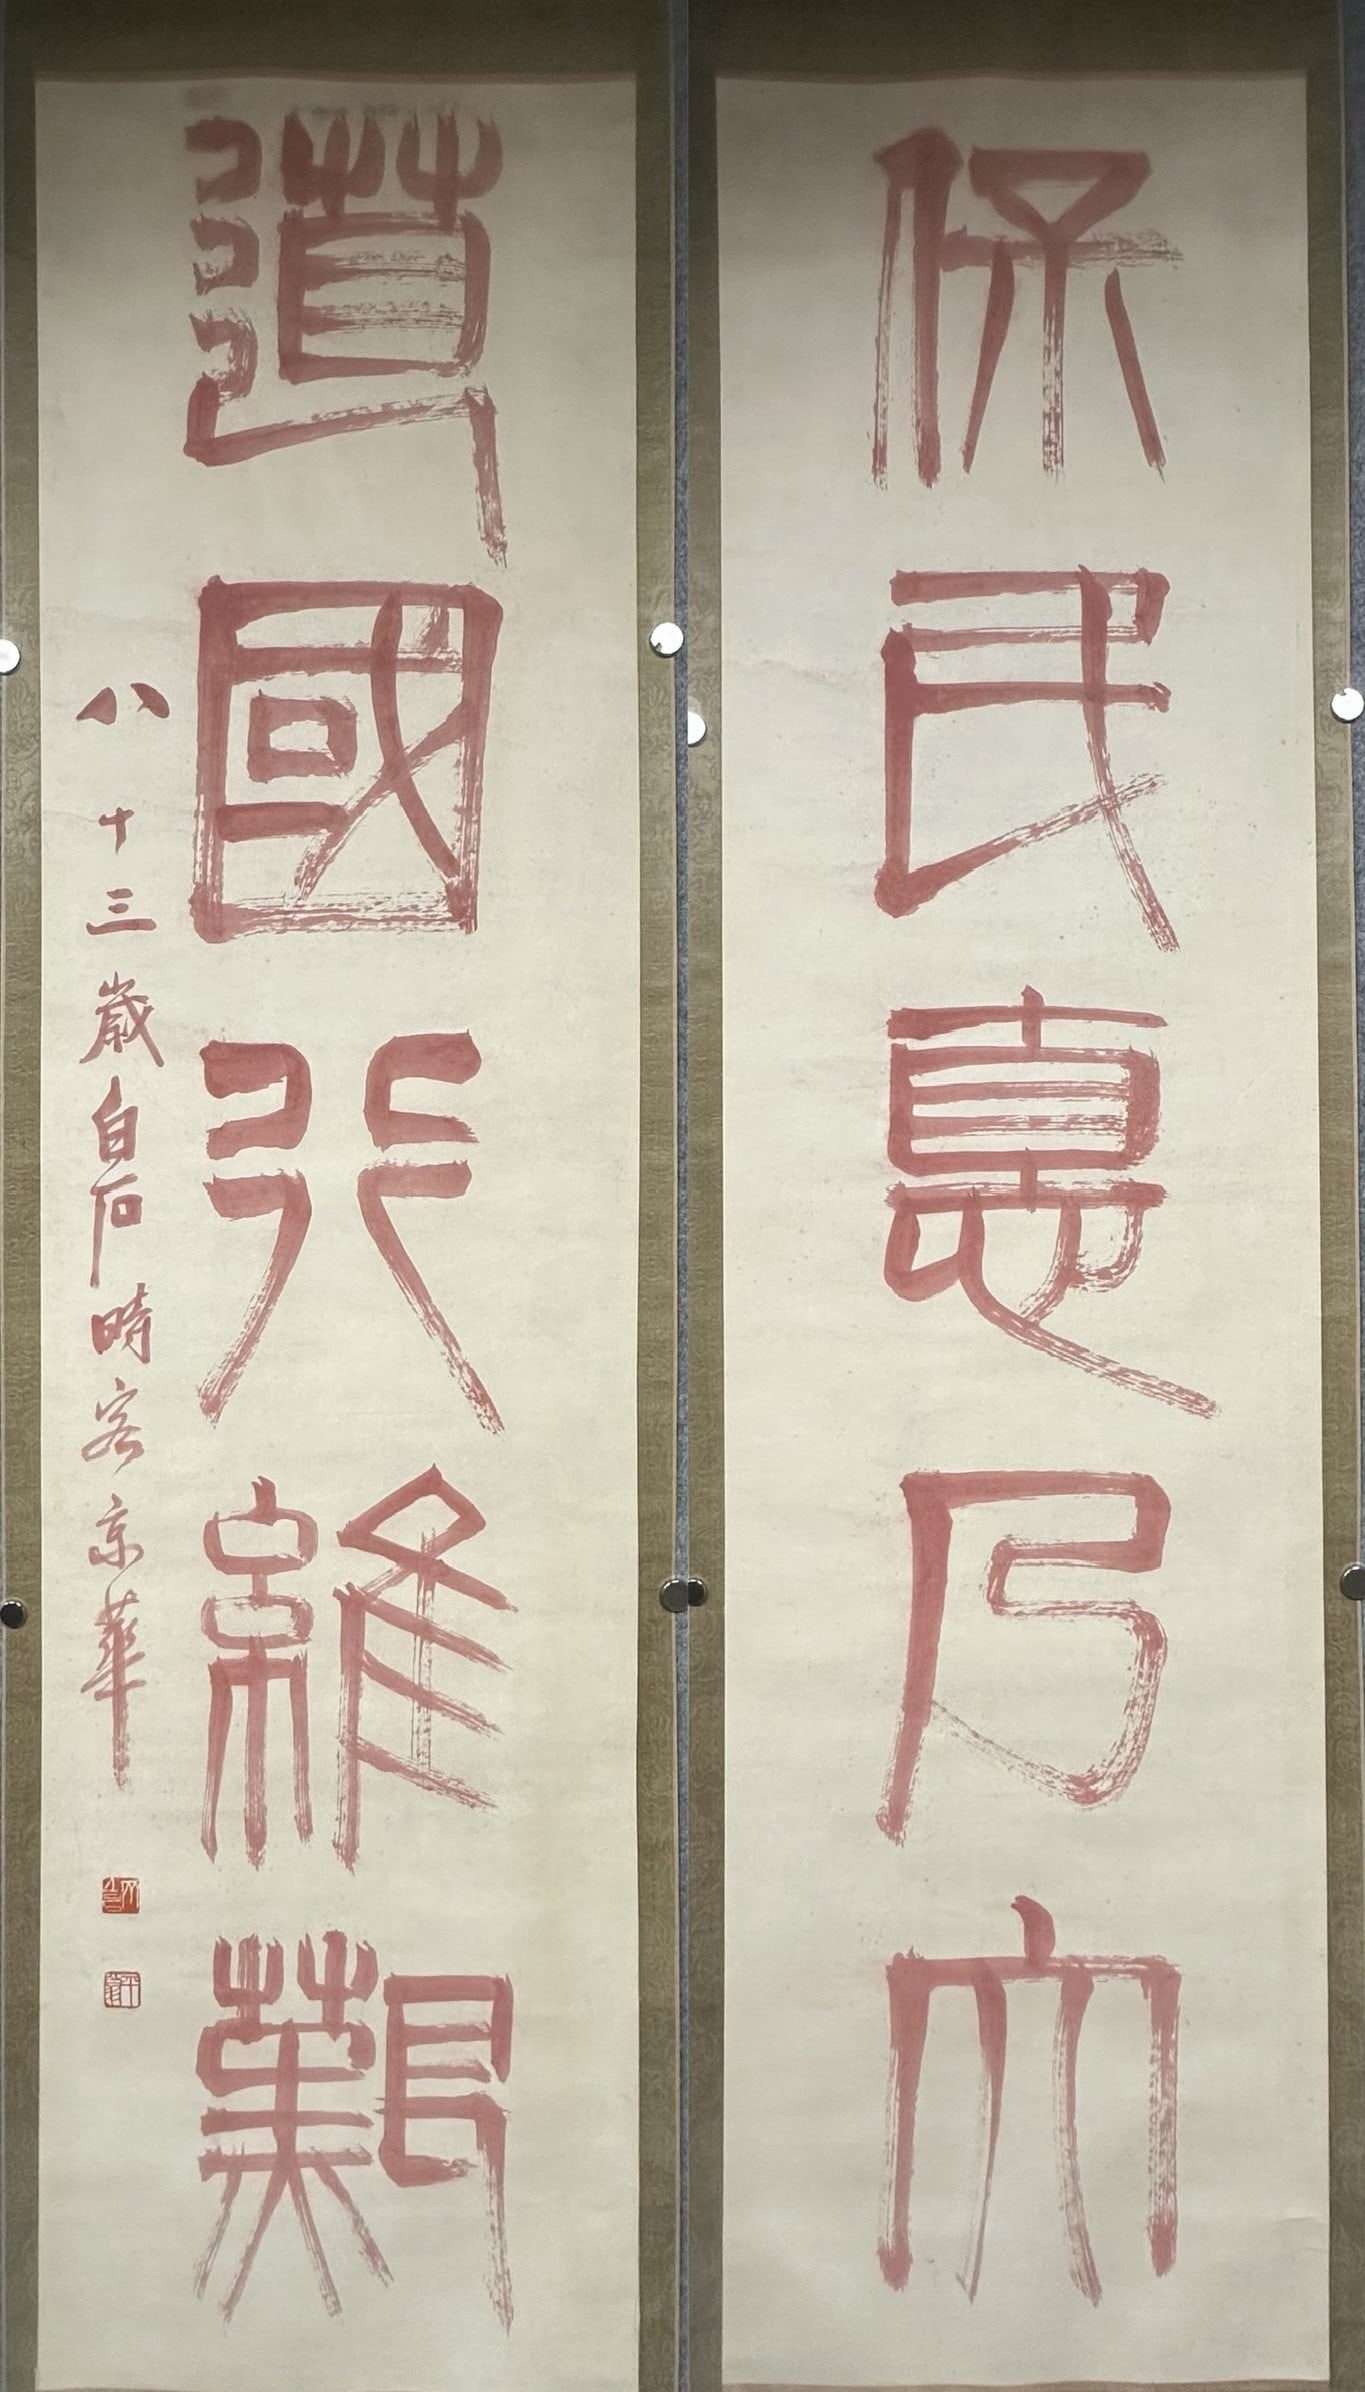 保民惠乃大
道國行維艱
八十三歲白石時客京華